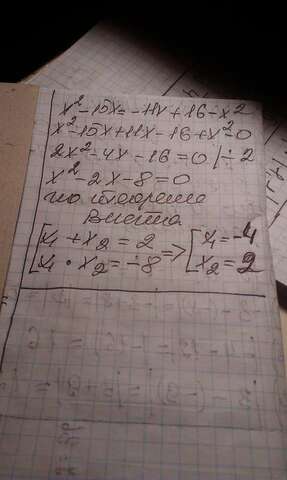 x² - 15x = -11x + 16 - x²
x² - 15x + 11x - 16 + x² = 0
2x² - 4x - 16 = 0 | ÷ 2
x² - 2x - 8 = 0
по теореме
Виетта
[x₁ + x₂ = 2
[x₁ · x₂ = -8 => [x₁ = -4
x₂ = 2